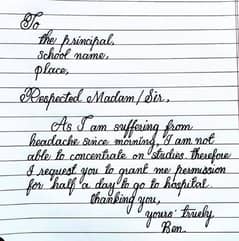 To
the principal,
school name,
place,
Respected Madam/Sir,
As I am suffering from
headache since morning, I am not
able to concentrate on studies. therefore
I request you to grant me permission
for half a day to go to hospital.
thanking you,
yours' truely
Ben.